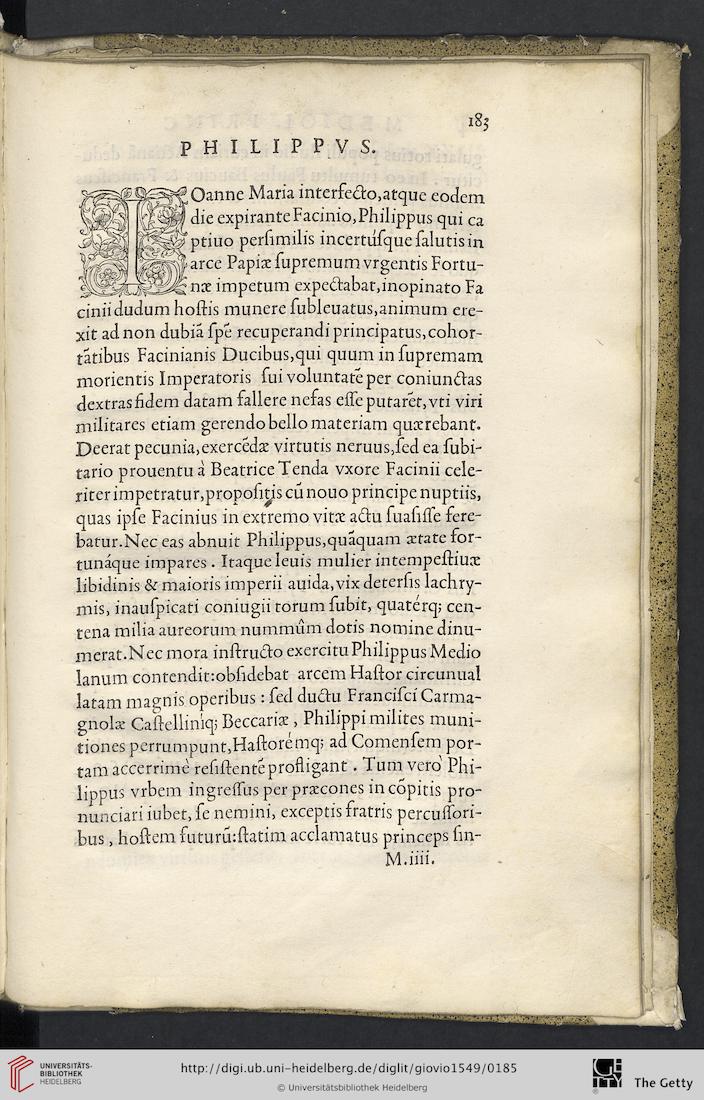 183
PHILIPPVS.
IOanne Maria interfecto, atque eodem
die expirante Facinio, Philippus qui ca
ptiuo persimilis incertúsque salutis in
arce Papiæ supremum vrgentis Fortu-
næ impetum expectabat, inopinato Fa
cinii dudum hostis munere subleuatus, animum ere-
xit ad non dubiã spẽ recuperandi principatus, cohor-
tãtibus Facinianis Ducibus, qui quum in supremam
morientis Imperatoris sui voluntatẽ per coniunctas
dextras fidem datam fallere nefas esse putarẽt, vti viri
militares etiam gerendo bello materiam quærebant.
Deerat pecunia, exercẽdæ virtutis neruus, sed ea subi-
tario prouentu à Beatrice Tenda vxore Facinii cele-
riter impetratur, propositis cũ nouo principe nuptiis,
quas ipse Facinius in extremo vitæ actu suasisse fere-
batur. Nec eas abnuit Philippus, quãquam ætate for-
tunáque impares. Itaque leuis mulier intempestiuæ
libidinis & maioris imperii auida, vix detersis lachry-
mis, inauspicati coniugii torum subit, quatérq; cen-
tena milia aureorum nummûm dotis nomine dinu-
merat. Nec mora instructo exercitu Philippus Medio
lanum contendit: obsidebat arcem Hastor circunual
latam magnis operibus: sed ductu Francisci Carma-
gnolæ Castelliniq; Beccariæ, Philippi milites muni-
tiones perrumpunt, Hastorémq; ad Comensem por-
tam accerrimè resistentẽ profligant. Tum verò Phi-
lippus vrbem ingressus per præcones in cõpitis pro-
nunciari iubet, se nemini, exceptis fratris percussori-
bus, hostem futurũ: statim acclamatus princeps sin-
M.iiii.
UNIVERSITÄTS-
BIBLIOTHEK
HEIDELBERG
http://digi.ub.uni-heidelberg.de/diglit/giovio1549/0185
© Universitätsbibliothek Heidelberg
GETTY
The Getty